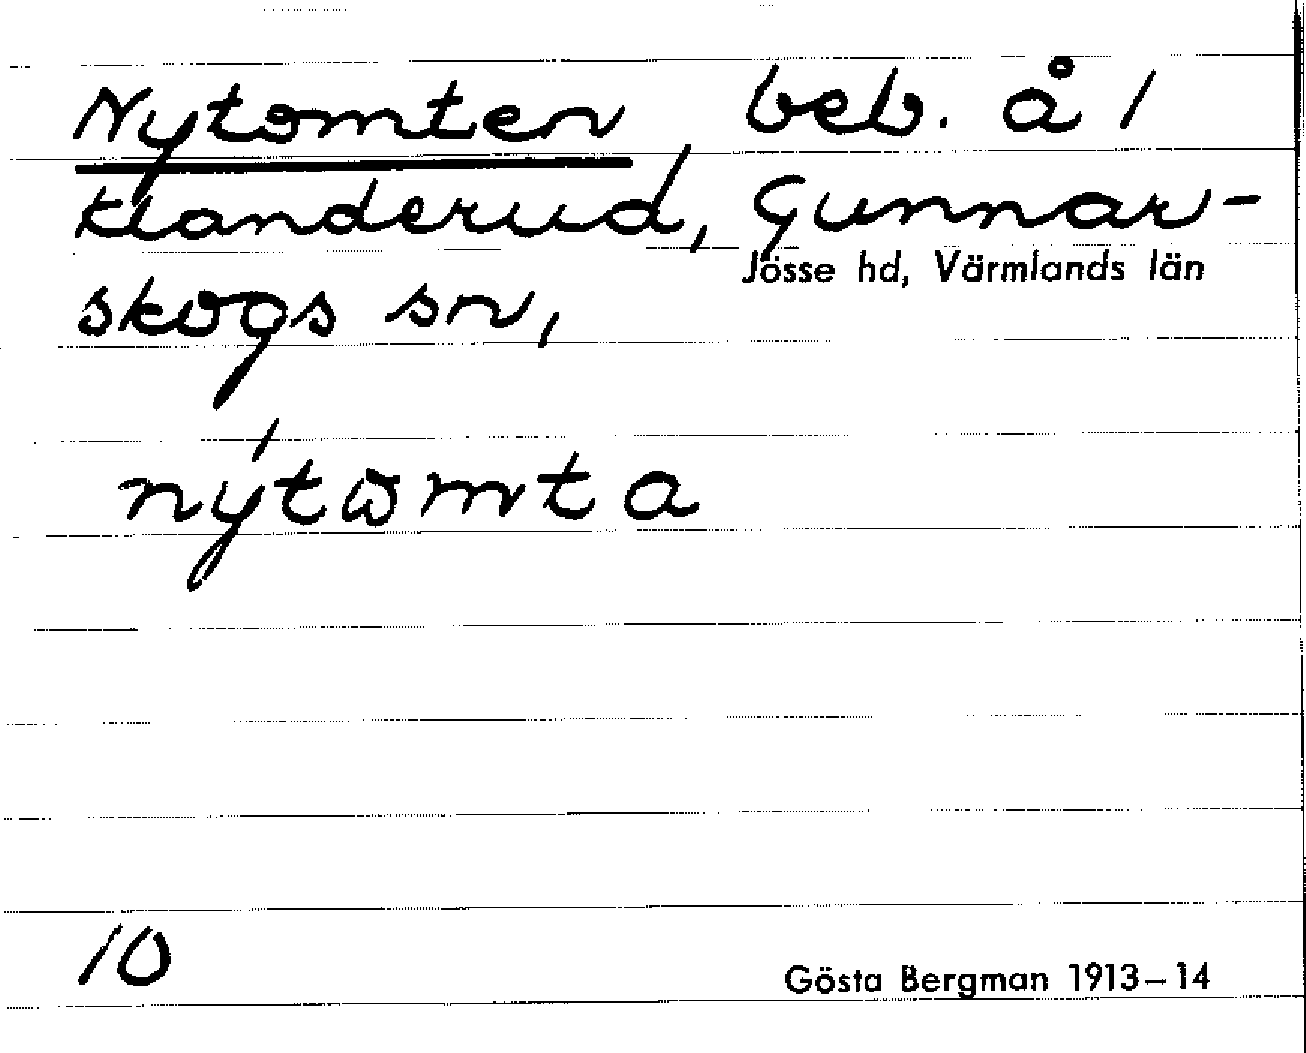 Nytomten beb. å 1
Klanderud, Gunnar-
Jösse hd, Värmlands län
skogs sn,
nýtωmta
10
Gösta Bergman 1913–14